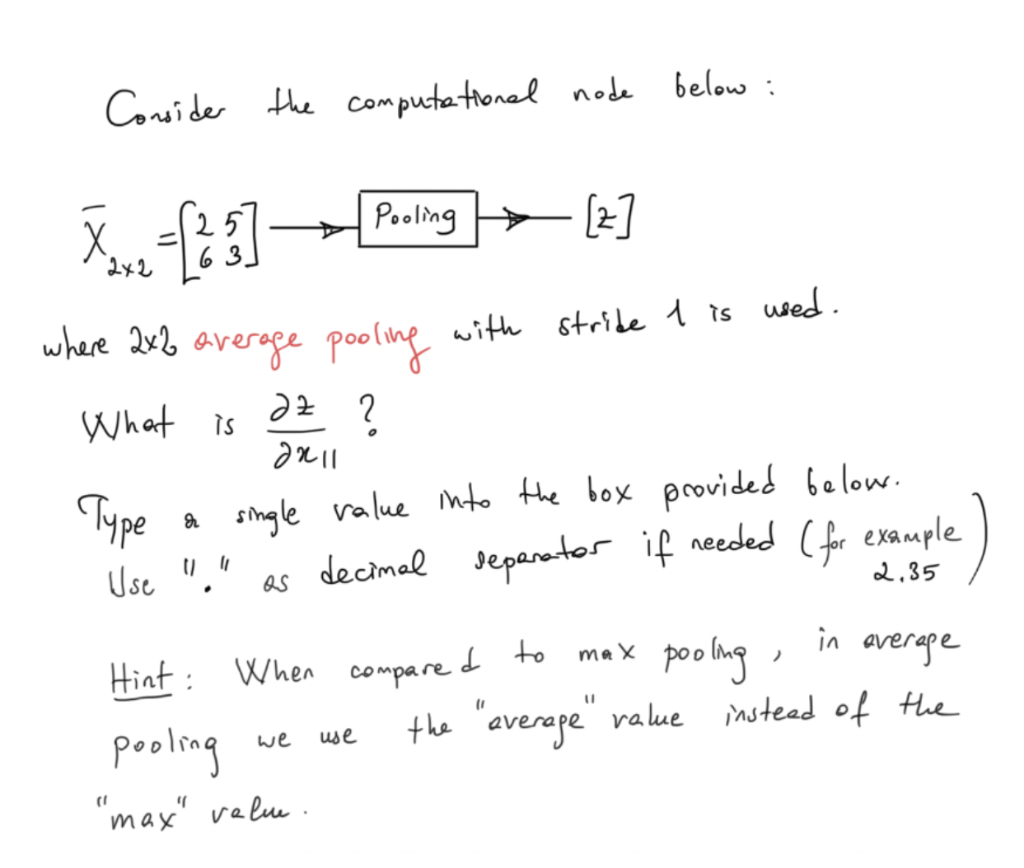 Consider the computational node below :
X̄₂ₓ₂ = [2 5 6 3] Pooling [z]
where 2x2 average pooling with stride 1 is used.
What is ∂z/∂x₁₁ ?
Type a single value into the box provided below.
Use "." as decimal separator if needed (for example 2.35)
Hint : When compared to max pooling , in average
pooling we use the "average" value instead of the
"max" value .